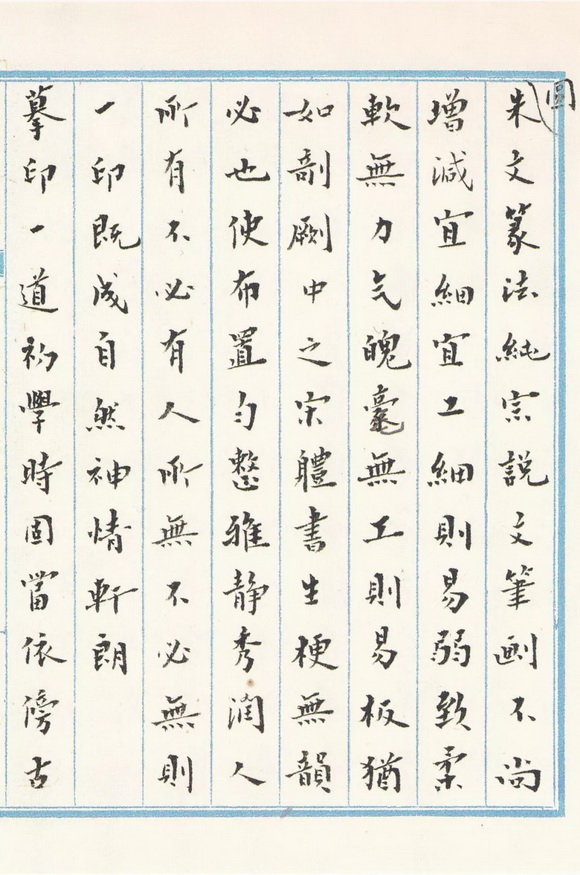 圓朱文篆法純宗説文筆劃不尚
增減宜細宜工細則易弱致柔
軟無力气魄毫無工則易板猶
如剞劂中之宋軆書生梗無韻
必也使布置勻整雅静秀潤人
所有不必有人所無不必無則
一印既成自然神情軒朗
摹印一道初學時固當依傍古